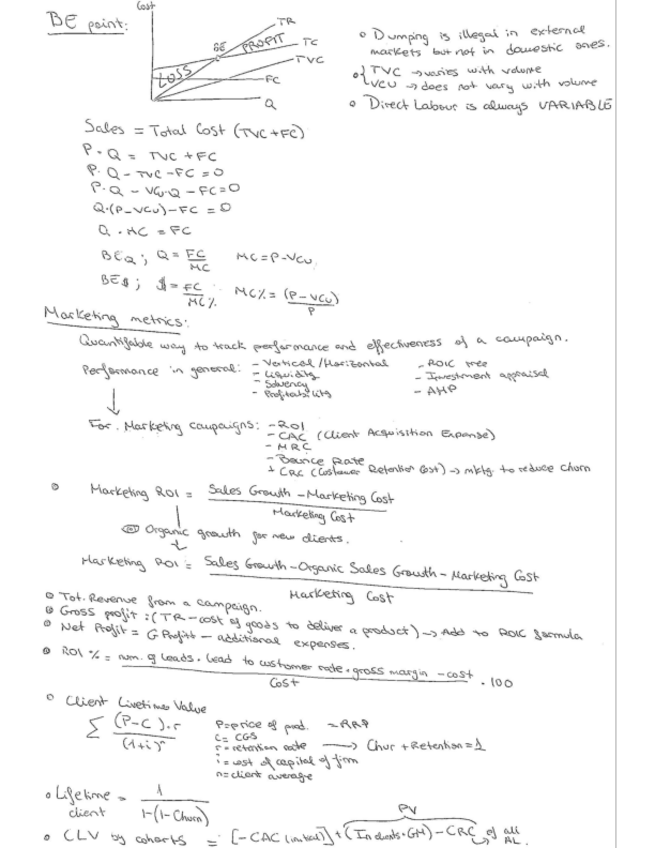 BE point:
Cost
TR
TC
TVC
FC
Q
BE
PROFIT
LOSS
o Dumping is illegal in external
markets but not in domestic ones.
o { TVC → varies with volume
VCU → does not vary with volume
o Direct Labour is always VARIABLE
Sales = Total Cost (TVC + FC)
P · Q = TVC + FC
P · Q - TVC - FC = 0
P · Q - VCu · Q - FC = 0
Q · (P - VCu) - FC = 0
Q · MC = FC
BEQ ; Q = FC / MC MC = P - VCu
BE$ ; $ = FC / MC% MC% = (P - VCU) / P
Marketing metrics:
Quantifiable way to track performance and effectiveness of a campaign.
Performance in general: - Vertical / Horizontal - ROIC tree
- Liquidity - Investment appraisal
- Solvency - AHP
- Profitability
For Marketing campaigns: - ROI
- CAC (Client Acquisition Expense)
- MRC
- Bounce Rate
+ CRC (Costumer Retention Cost) → mktg to reduce churn
o Marketing ROI = Sales Growth - Marketing Cost / Marketing Cost
Organic growth for new clients.
Marketing ROI = Sales Growth - Organic Sales Growth - Marketing Cost / Marketing Cost
o Tot. Revenue from a campaign.
o Gross profit: (TR - cost of goods to deliver a product) → Add to ROIC formula
o Net Profit = G Profit - additional expenses.
o ROI % = num. of leads · lead to customer rate · gross margin - cost / Cost · 100
o Client Livetime Value
∑ (P-C) · r / (1+i)ⁿ
P = price of prod. = RRP
C = CGS
r = retention rate → Chur + Retention = 1
i = cost of capital of firm
n = client average
o Lifetime client = 1 / 1-(1-Churn)
PV
o CLV by cohorts = [-CAC (initial)] + (In clients · GM) - CRC of all